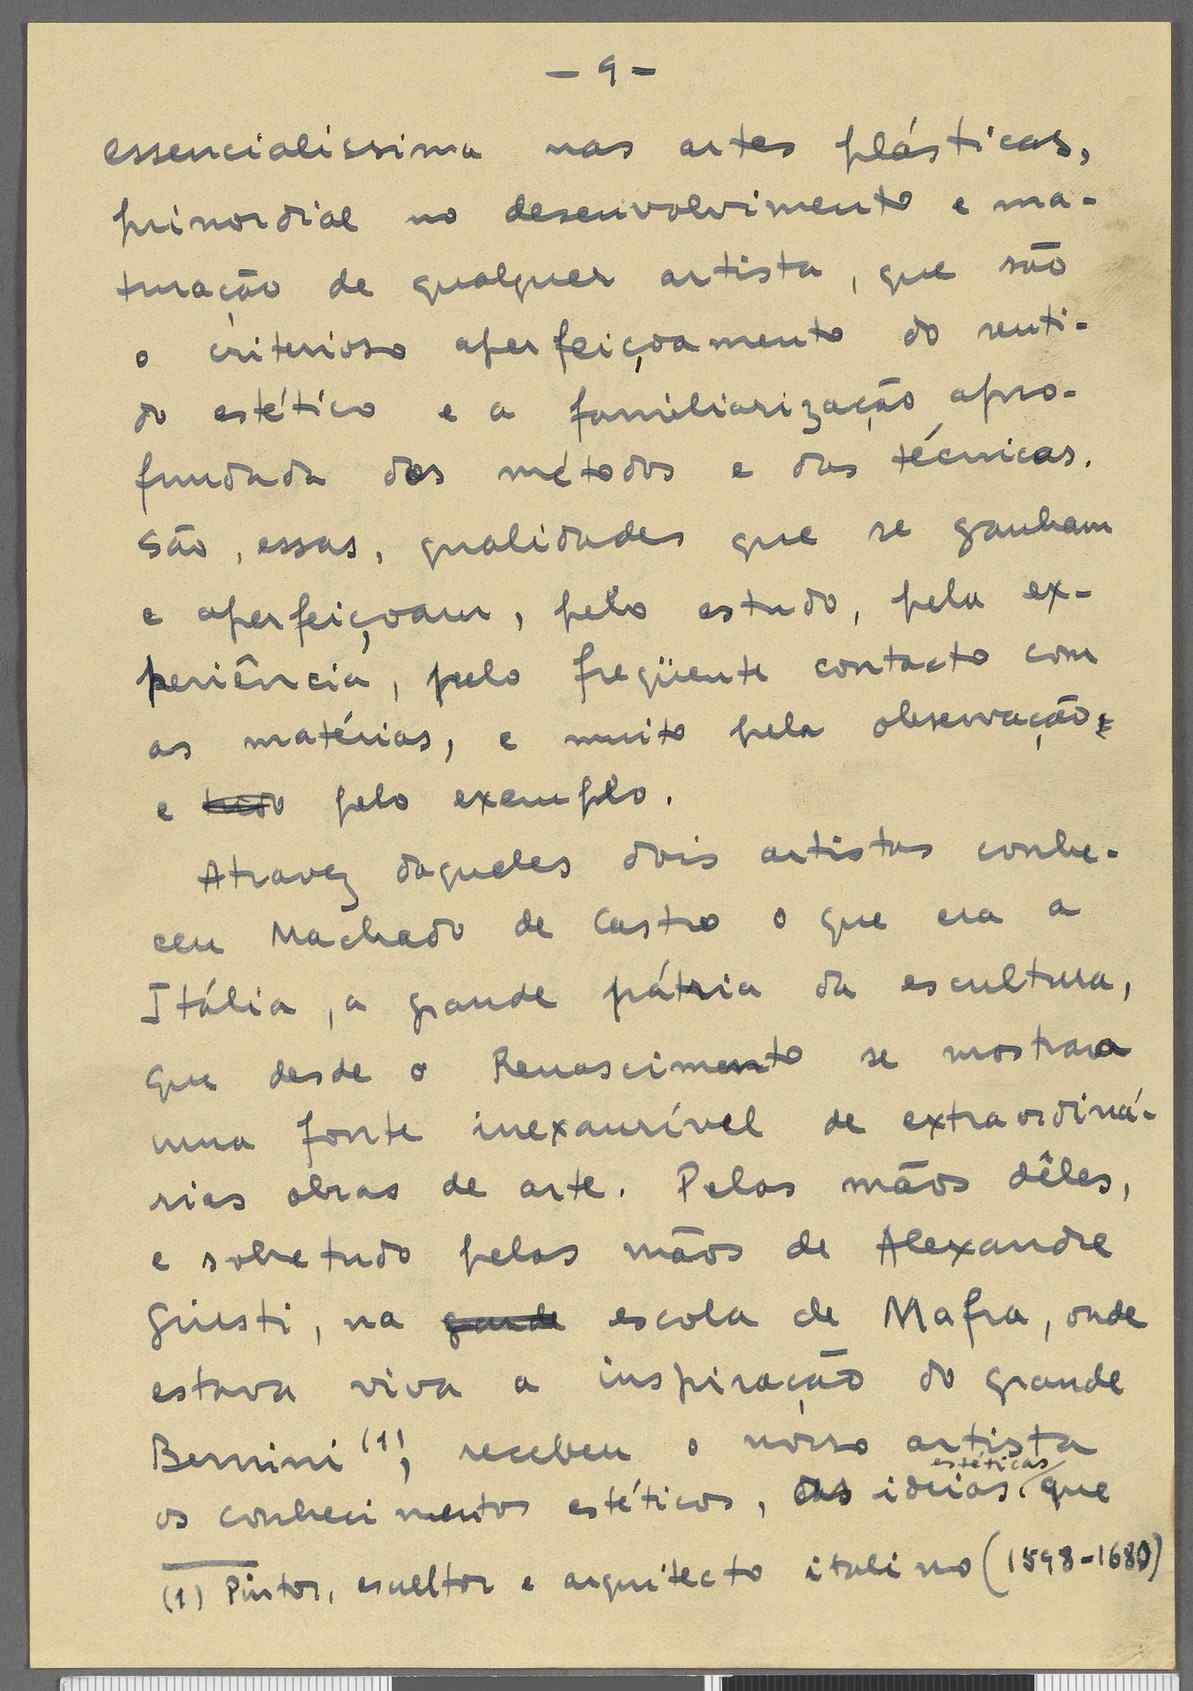 - 9 -
essencialissima nas artes plásticas,
primordial no desenvolvimento e ma-
turação de qualquer artista, que são
o criterioso aperfeiçoamento do senti-
do estético e a familiarização apro-
fundada dos métodos e das técnicas.
São, essas, qualidades que se ganham
e aperfeiçoam, pelo estudo, pela ex-
periência, pelo freqüente contacto com
as matérias, e muito pela observação,
e pelo exemplo.
Atravez daqueles dois artistas conhe-
ceu Machado de Castro o que era a
Itália, a grande pátria da escultura,
que desde o Renascimento se mostrara
uma fonte inexaurível de extraordiná-
rias obras de arte. Pelas mãos dêles,
e sobretudo pelas mãos de Alexandre
Giusti, na grande escola de Mafra, onde
estava viva a inspiração do grande
Bernini (1), recebeu o nósso artista
os conhecimentos estéticos, as ideias estéticas que
(1) Pintor, escultor e arquitecto italino (1598-1680)